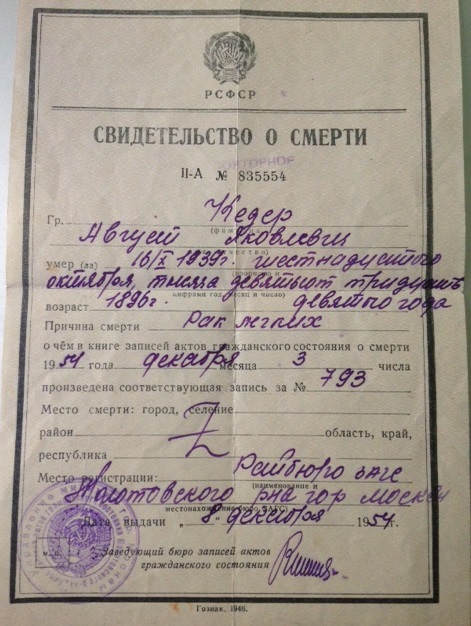 РСФСР
СВИДЕТЕЛЬСТВО О СМЕРТИ
ПОВТОРНОЕ
II-А № 835554
Гр. Кедер
(фамилия,
Август Яковлевич
умер (ла) 16/X 1939г. шестнадцатого
(прописью и
октября, тысяча девятьсот тридцать
цифрами год, месяц и число)
возраст 1896г. девятого года
Причина смерти рак легких
о чём в книге записей актов гражданского состояния о смерти
1954 года декабря месяца 3 числа
произведена соответствующая запись за № 793
Место смерти: город, селение
район область, край,
республика
Место регистрации: Райбюро загс
(наименование и
Молотовского р-на гор Москвы
местонахождение бюро ЗАГС)
Дата выдачи „8" декабря 1954г.
М. П.
Заведующий бюро записей актов
гражданского состояния
Гознак. 1946.